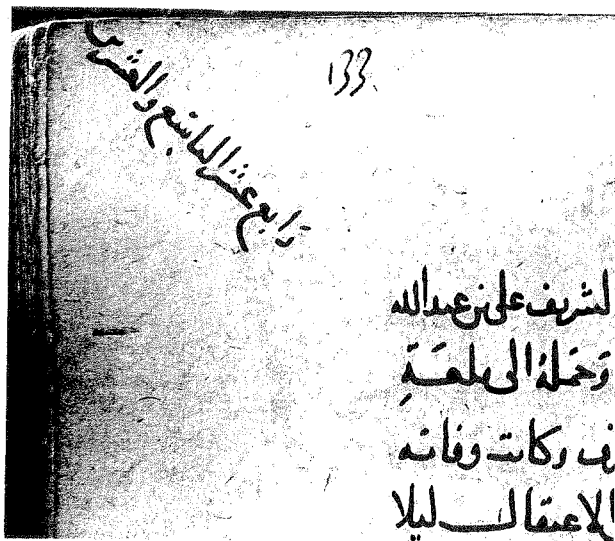 133
رابع عشر التاسع والعشرين
لشريف على بن عبدالله
وحمله الى قلعة
وكانت وفاته
الاعتقال ليلا